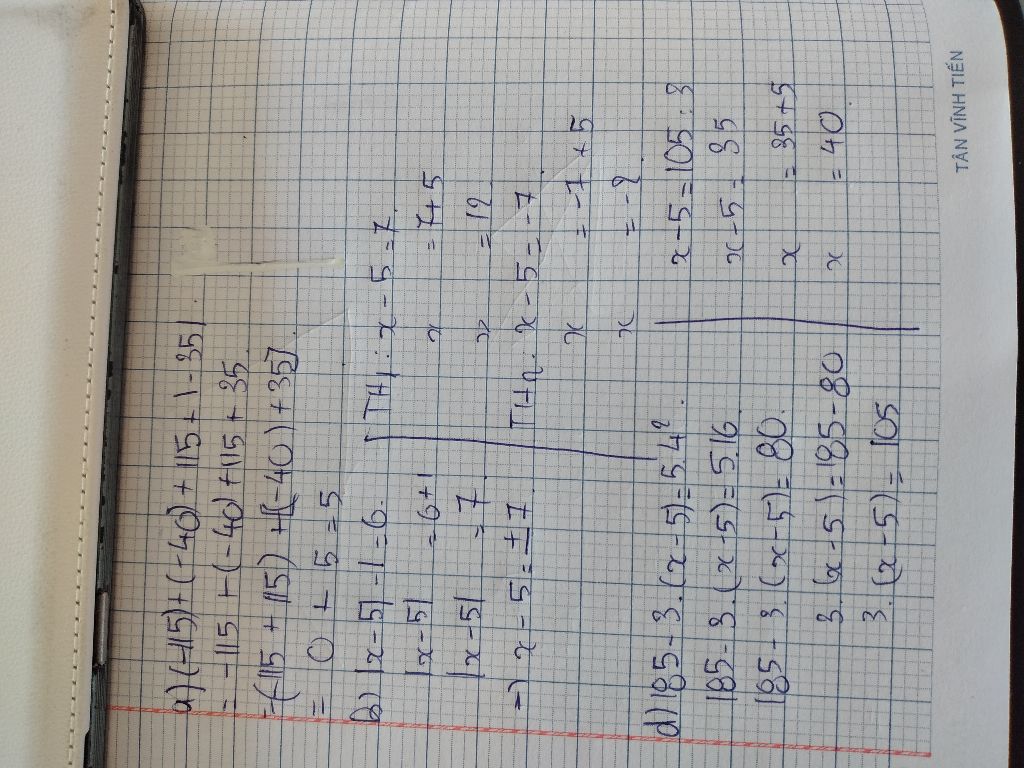 a) (-115) + (-40) + 115 + |-35|
= -115 + (-40) + 115 + 35
= (115 + 115) + [(-40) + 35]
= 0 + 5 = 5
b) |x-5| -1 = 6.
|x-5| = 6+1
|x-5| = 7
=> x - 5 = ± 7
TH1: x - 5 = 7
x = 7+5
x = 12
TH2: x - 5 = -7
x = -7 + 5
x = -2
d) 185 - 3.(x-5) = 5.4²
185 - 3.(x-5) = 5.16
185 - 3.(x-5) = 80.
3.(x-5) = 185-80
3.(x-5) = 105
x-5 = 105 : 3
x-5 = 35
x = 35+5
x = 40
TÂN VĨNH TIẾN